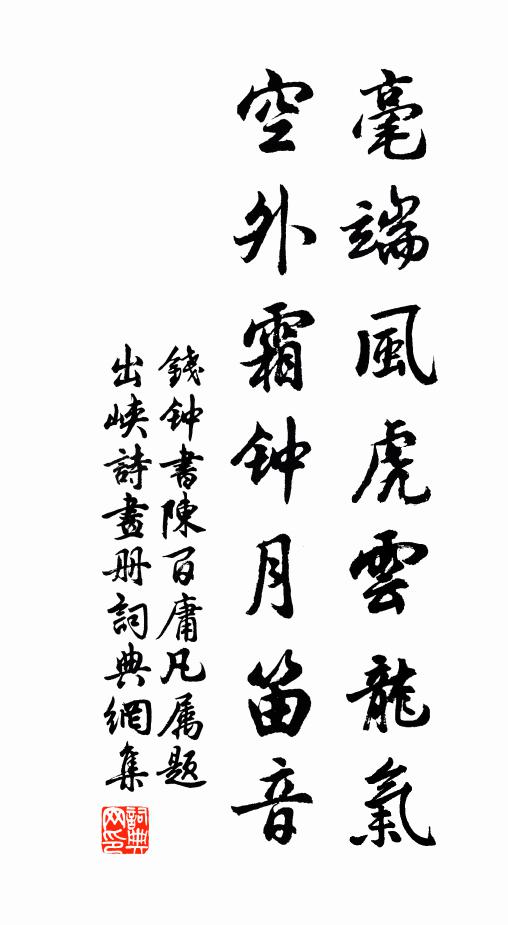 毫端風虎雲龍氣
空外霜钟月笛音
錢钟書陳百庸凡属题
出峽詩畫册詞典網集
詞典网印